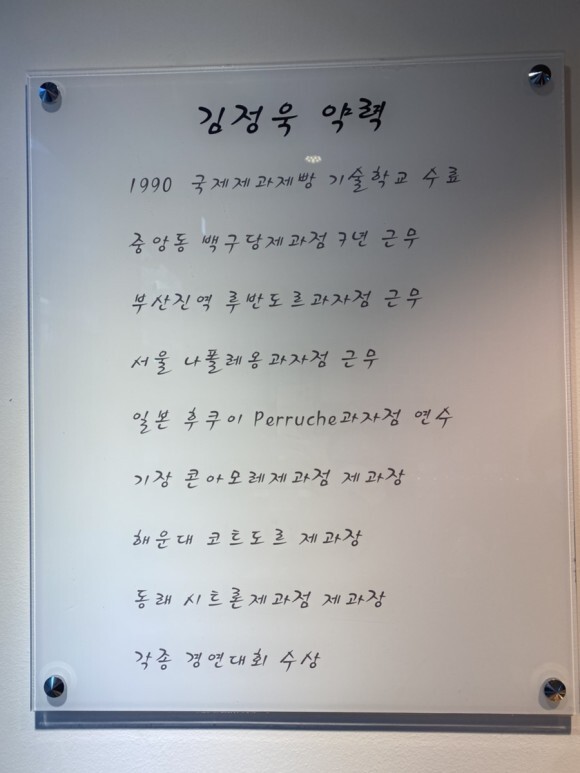 김정욱 약력
1990 국제제과제빵 기술학교 수료
중앙동 백구당제과점 7년 근무
부산진역 루반도르과자점 근무
서울 나폴레옹과자점 근무
일본 후쿠이 Perruche과자점 연수
기장 콘아모레제과점 제과장
해운대 코트도르 제과장
동래 시트론제과점 제과장
각종 경연대회 수상